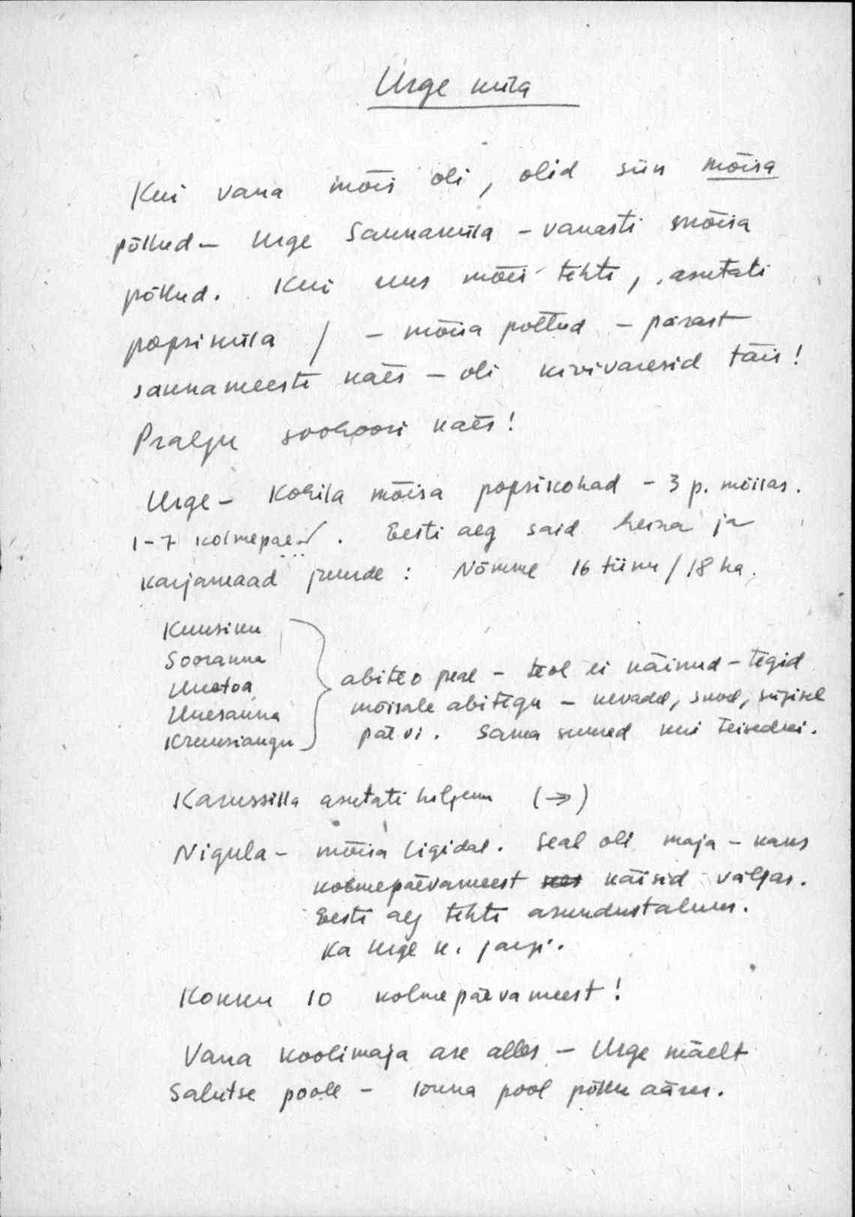 Urge küla
Kui vana mõis oli, olid siin mõisa
põllud – Urge Saunaküla – vanasti mõisa
põllud. Kui uus mõis tehti, asutati
popsiküla / – mõisa põllud – pärast
saunameeste käes – oli kivivaresid täis!
Praegu sovhoosi käes!
Urge – Kohila mõisa popsikohad – 3 p. mõisas.
1–7 kolmepäev. Eesti aeg said heina ja
karjamaad juurde: Nõmme 16 tiinu / 18 ha.
Kuusiku
Sooranna
Uuetoa
Uuesauna
abiteo peal – teol ei käinud – tegid
mõisale abitegu – kevadel, suvel, sügisel
päevi. Sama suured kui teisedki.
Karussilla asutati hiljem (→)
Nigula – mõisa ligidal. Seal oli maja – kaks
kolmepäevameest käisid väljas.
Eesti aeg tehti asundustaluks.
Ka Urge k. järgi.
Kokku 10 kolmepäevameest!
Vana koolimaja ase alles – Urge mäelt
Salutse poole – lõuna pool põllu ääres.